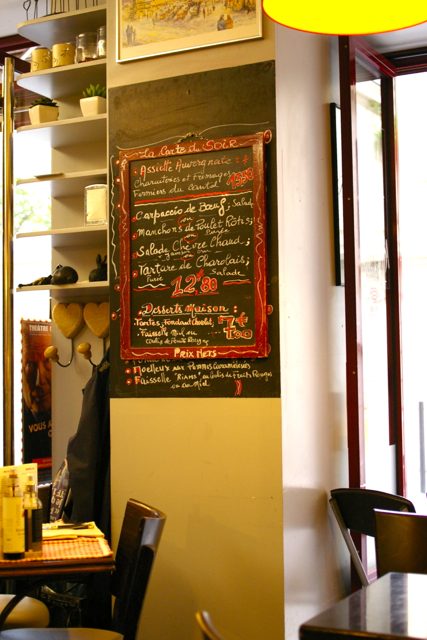 La Carte du SOIR
Assiette Auvergnate : 4
Charcuteries et Fromages
Fermiers du Cantal
Carpaccio de Bœuf, Salade
ou
Manchons de Poulet Rôtis;
ou
Salade Chèvre Chaud;
ou
Tartare de Charolais;
Salade
12€80
Desserts Maison:
Tartes, Fondant Chocolat,
Faisselle Miel ou
Coulis de Fruits Rouges
7€00
Prix Nets
Moelleux aux Pommes Caramélisées
Faisselle "Rians" au Coulis de Fruits Rouges
ou au Miel
THÉÂTRE
VOUS A